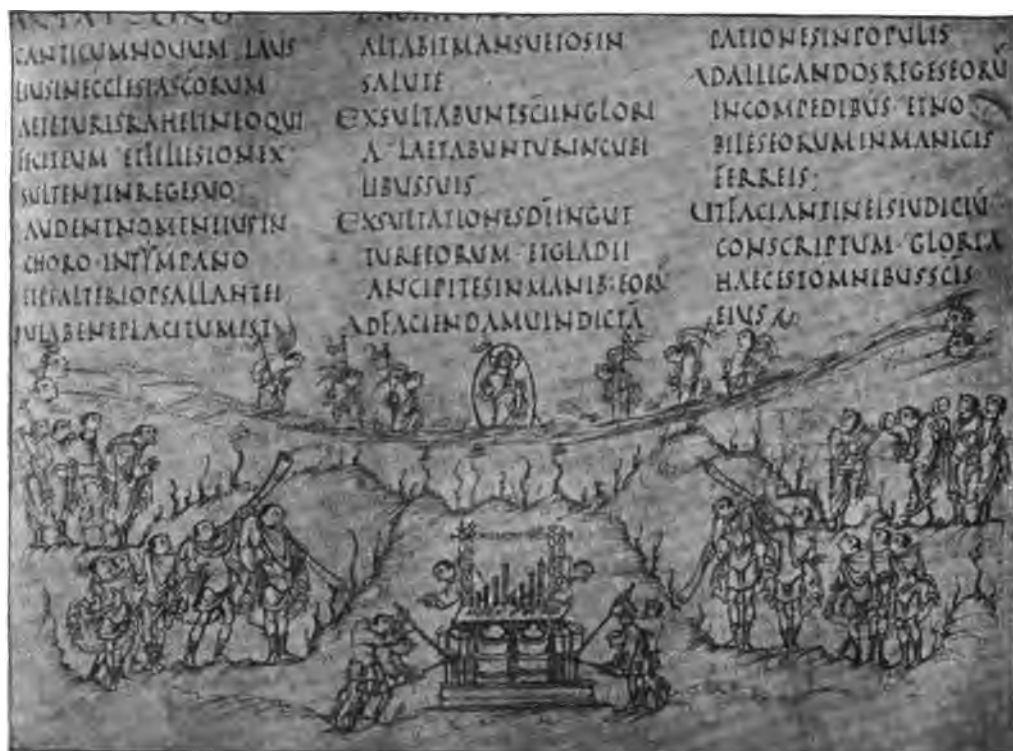 CANTICUMNOUUM LAUS
EIUSINECCLESIASCORUM
LAETETURISRAHELINEOQUI
FECITEUM ETFILIISIONEX
SULTENTINREGESUO
LAUDENTNOMENEIUSIN
CHORO·INTYMPANO
ETPSALTERIOPSALLANTEI
ALTABITMANSUETOSIN
SALUTE
EXSULTABUNTSC̄IINGLORI
A LAETABUNTURINCUBI
LIBUSSUIS
EXSULTATIONESD̄IINGUT
TUREEORUM·ETGLADII
ANCIPITESINMANIB:EORŪ
ADFACIENDAMUINDICTĀ
PATIONESINPOPULIS
ADALLIGANDOSREGESEORŪ
INCOMPEDIBUS·ETNO
BILESEORUMINMANICIS
FERREIS:
UTFACIANTINEISIUDICIŪ
CONSCRIPTUM·GLORIA
HAECESTOMNIBUSSC̄IS
EIUS